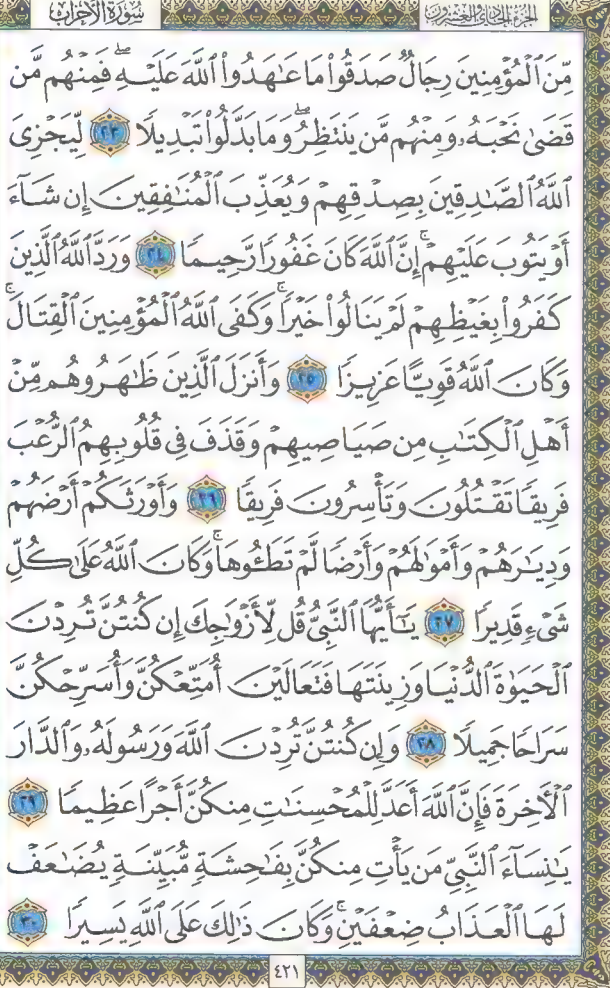 سُورَةُ الأَحْزَابِ الجزء الحادي والعشرون
مِّنَ ٱلْمُؤْمِنِينَ رِجَالٌ صَدَقُوا۟ مَا عَـٰهَدُوا۟ ٱللَّهَ عَلَيْهِ ۖ فَمِنْهُم مَّن
قَضَىٰ نَحْبَهُۥ وَمِنْهُم مَّن يَنتَظِرُ ۖ وَمَا بَدَّلُوا۟ تَبْدِيلًا ٢٣ لِّيَجْزِىَ
ٱللَّهُ ٱلصَّـٰدِقِينَ بِصِدْقِهِمْ وَيُعَذِّبَ ٱلْمُنَـٰفِقِينَ إِن شَآءَ
أَوْ يَتُوبَ عَلَيْهِمْ ۚ إِنَّ ٱللَّهَ كَانَ غَفُورًا رَّحِيمًا ٢٤ وَرَدَّ ٱللَّهُ ٱلَّذِينَ
كَفَرُوا۟ بِغَيْظِهِمْ لَمْ يَنَالُوا۟ خَيْرًا ۚ وَكَفَى ٱللَّهُ ٱلْمُؤْمِنِينَ ٱلْقِتَالَ ۚ
وَكَانَ ٱللَّهُ قَوِيًّا عَزِيزًا ٢٥ وَأَنزَلَ ٱلَّذِينَ ظَـٰهَرُوهُم مِّنْ
أَهْلِ ٱلْكِتَـٰبِ مِن صَيَاصِيهِمْ وَقَذَفَ فِى قُلُوبِهِمُ ٱلرُّعْبَ
فَرِيقًا تَقْتُلُونَ وَتَأْسِرُونَ فَرِيقًا ٢٦ وَأَوْرَثَكُمْ أَرْضَهُمْ
وَدِيَـٰرَهُمْ وَأَمْوَٰلَهُمْ وَأَرْضًا لَّمْ تَطَـُٔوهَا ۚ وَكَانَ ٱللَّهُ عَلَىٰ كُلِّ
شَىْءٍ قَدِيرًا ٢٧ يَـٰٓأَيُّهَا ٱلنَّبِىُّ قُل لِّأَزْوَٰجِكَ إِن كُنتُنَّ تُرِدْنَ
ٱلْحَيَوٰةَ ٱلدُّنْيَا وَزِينَتَهَا فَتَعَالَيْنَ أُمَتِّعْكُنَّ وَأُسَرِّحْكُنَّ
سَرَاحًا جَمِيلًا ٢٨ وَإِن كُنتُنَّ تُرِدْنَ ٱللَّهَ وَرَسُولَهُۥ وَٱلدَّارَ
ٱلْـَٔاخِرَةَ فَإِنَّ ٱللَّهَ أَعَدَّ لِلْمُحْسِنَـٰتِ مِنكُنَّ أَجْرًا عَظِيمًا ٢٩
يَـٰنِسَآءَ ٱلنَّبِىِّ مَن يَأْتِ مِنكُنَّ بِفَـٰحِشَةٍ مُّبَيِّنَةٍ يُضَـٰعَفْ
لَهَا ٱلْعَذَابُ ضِعْفَيْنِ ۚ وَكَانَ ذَٰلِكَ عَلَى ٱللَّهِ يَسِيرًا ٣٠
٤٢١